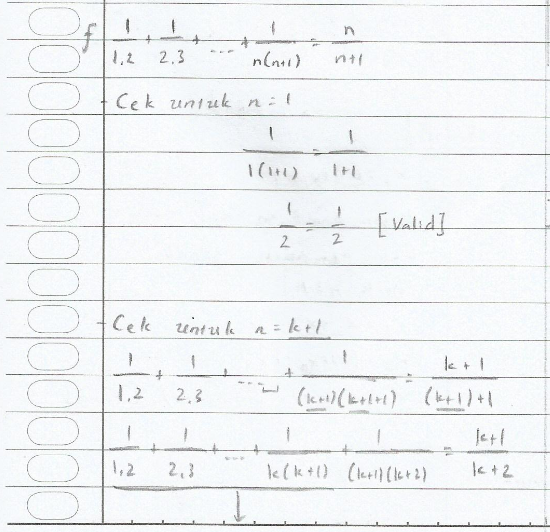 f 1/1.2 + 1/2.3 + .... + 1/n(n+1) = n/n+1
- Cek untuk n = 1
1/1(1+1) = 1/1+1
1/2 = 1/2 [Valid]
- Cek untuk n = k+1
1/1.2 + 1/2.3 + .... + 1/(k+1)(k+1+1) = k+1/(k+1)+1
1/1.2 + 1/2.3 + .... + 1/k(k+1) + 1/(k+1)(k+2) = k+1/k+2